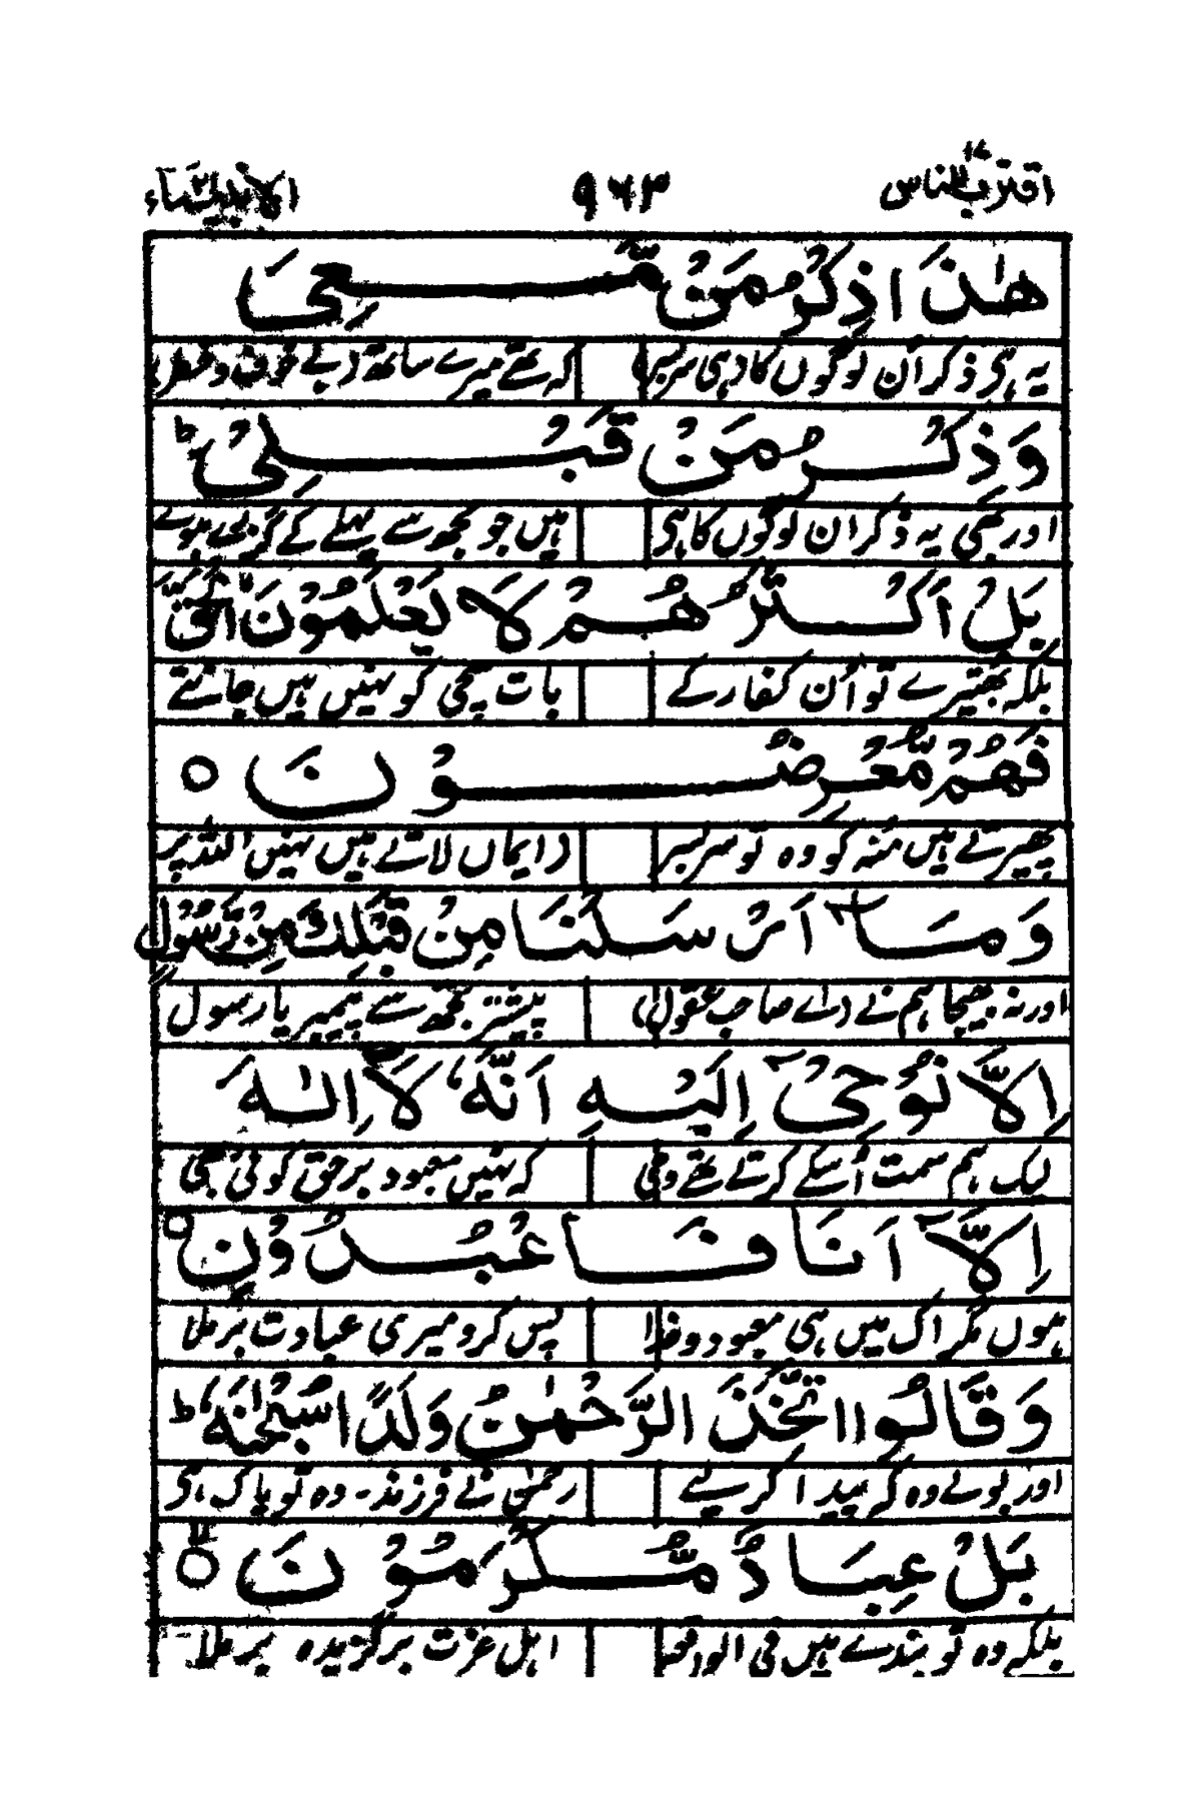 اقترب للناس ١٧ ٩٦٣ الانبیاء ٢١
هٰذَا ذِكْرُ مَنْ مَّعِيَ
یہ ہی ذکر اُن لوگوں کا دہی سربسر) کہ تھے میرے ساتھ (بے خوف و خطر)
وَذِكْرُ مَنْ قَبْلِيْ ؕ
اور بھی یہ ذکر ان لوگوں کا ہی ہیں جو مجھ سے پہلے کے گزرے ہوئے
بَلْ اَكْثَرُهُمْ لَا يَعْلَمُوْنَ الْحَقَّ
بلکہ بہتیرے تو اُن کفار کے بات سچی کو نہیں ہیں جانتے
فَهُمْ مُّعْرِضُوْنَ ○
پھیرتے ہیں منہ کو وہ تو سربسر (ایماں لاتے ہیں نہیں اللہ پر
وَمَآ اَرْسَلْنَا مِنْ قَبْلِكَ مِنْ رَّسُوْلٍ
اور نہ بھیجا ہم نے (اے صاحب عقول) پیشتر تجھ سے پیمبر یا رسول
اِلَّا نُوْحِيْٓ اِلَيْهِ اَنَّهٗ لَآ اِلٰهَ
لیک ہم سمت اُسکے کرتے تھے وحی کہ نہیں معبود برحق کوئی بھی
اِلَّآ اَنَا فَاعْبُدُوْنِ ○
ہوں مگر اک میں ہی معبود و خدا پس کرو میری عبادت برملا
وَقَالُوا اتَّخَذَ الرَّحْمٰنُ وَلَدًا سُبْحٰنَهٗ ؕ
اور بولے وہ کہ پیدا کر لیے رحمٰن نے فرزند۔ وہ تو پاک ہی
بَلْ عِبَادٌ مُّكْرَمُوْنَ ○
بلکہ وہ تو بندے ہیں فی الواقعہ اہل عزت برگزیدہ برملا